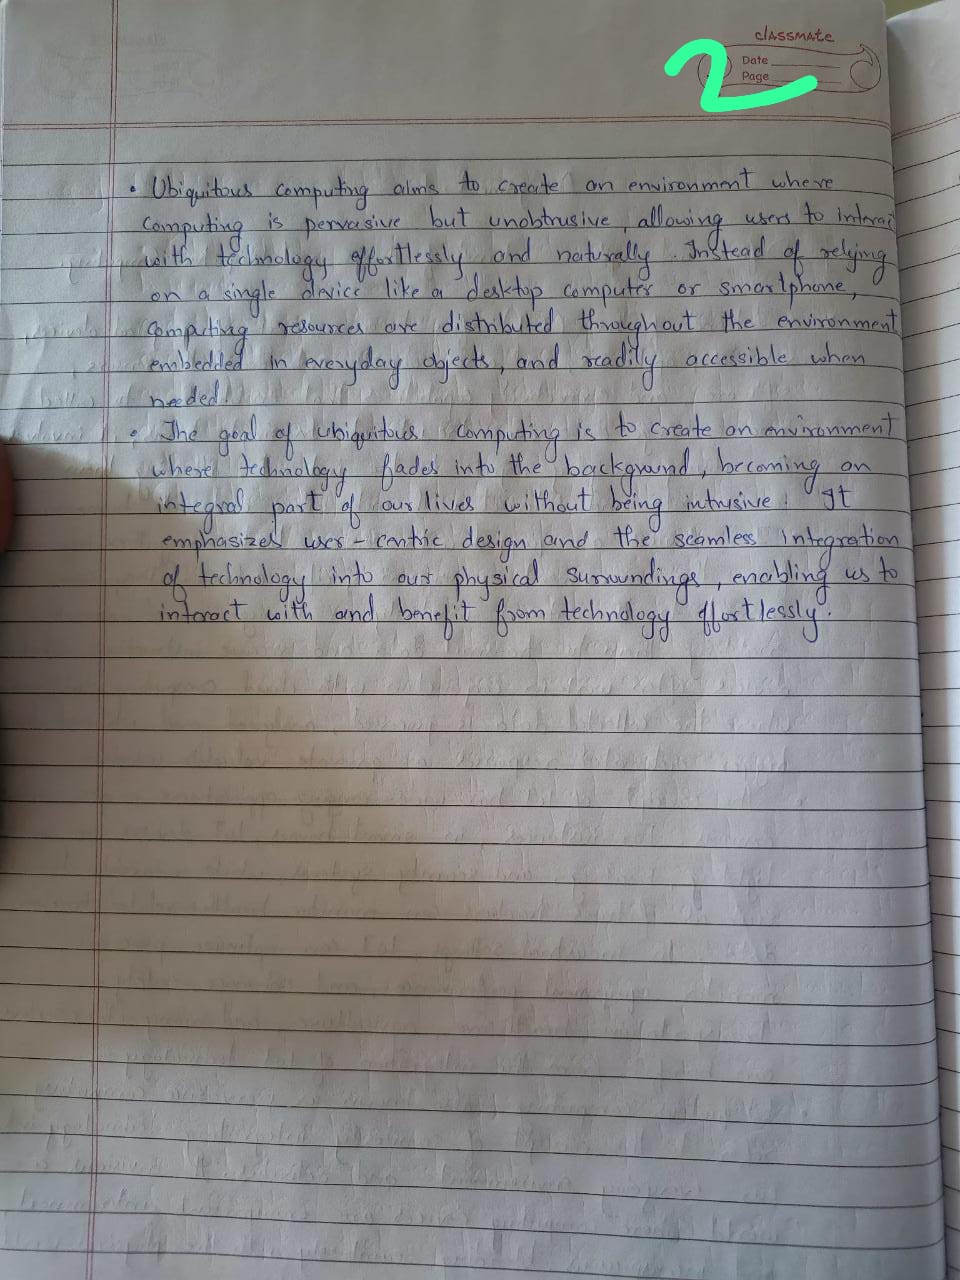 classmate
Date
Page
2
• Ubiquitous computing aims to create an environment where
computing is pervasive but unobtrusive, allowing users to interac
with technology effortlessly and naturally. Instead of relying
on a single device like a desktop computer or smartphone,
computing resources are distributed throughout the environment
embedded in everyday objects, and readily accessible when
needed.
• The goal of ubiquitous computing is to create an environment
where technology fades into the background, becoming an
integral part of our lives without being intrusive. It
emphasizes user-centric design and the seamless integration
of technology into our physical surroundings, enabling us to
interact with and benefit from technology effortlessly.